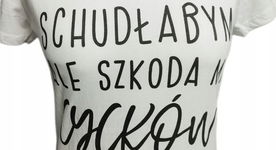 SCHUDŁABYM
ALE SZKODA
CYCKÓW